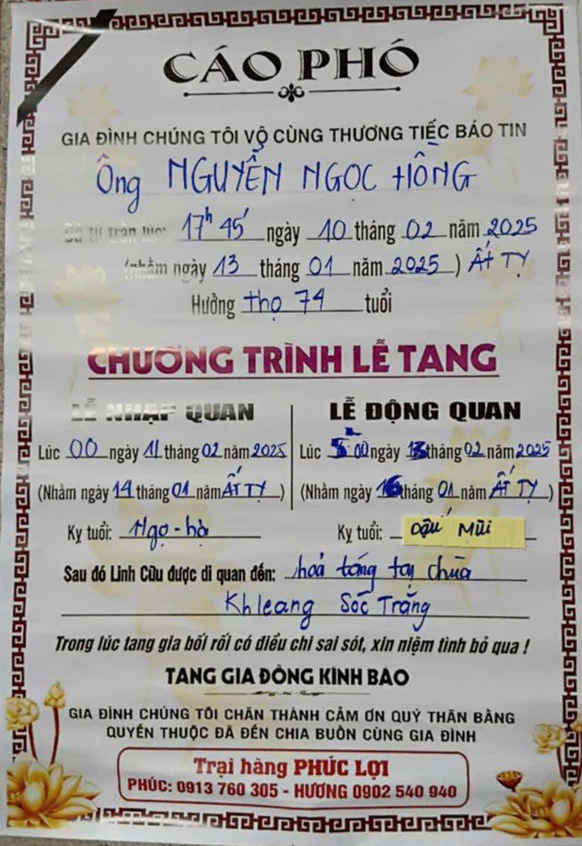 CÁO PHÓ
GIA ĐÌNH CHÚNG TÔI VÔ CÙNG THƯƠNG TIẾC BÁO TIN
Ông NGUYỄN NGỌC HỒNG
Đã từ trần lúc: 17h 45' ngày 10 tháng 02 năm 2025
(nhằm ngày 13 tháng 01 năm 2025) ẤT TỴ
Hưởng thọ 74 tuổi
CHƯƠNG TRÌNH LỄ TANG
LỄ NHẬP QUAN
Lúc 00 ngày 11 tháng 02 năm 2025
(Nhằm ngày 14 tháng 01 năm ẤT TỴ)
Kỵ tuổi: Ngọ -
LỄ ĐỘNG QUAN
Lúc 00 ngày 13 tháng 02 năm 2025
(Nhằm ngày 16 tháng 01 năm ẤT TỴ)
Kỵ tuổi: Dậu Mũi
Sau đó Linh Cữu được di quan đến: hoả táng tại chùa
Khleang Sóc Trăng
Trong lúc tang gia bối rối có điều chi sai sót, xin niệm tình bỏ qua !
TANG GIA ĐỒNG KÍNH BÁO
GIA ĐÌNH CHÚNG TÔI CHÂN THÀNH CẢM ƠN QUÝ THÂN BẰNG
QUYẾN THUỘC ĐÃ ĐẾN CHIA BUỒN CÙNG GIA ĐÌNH
Trại hàng PHÚC LỢI
PHÚC: 0913 760 305 - HƯƠNG 0902 540 940